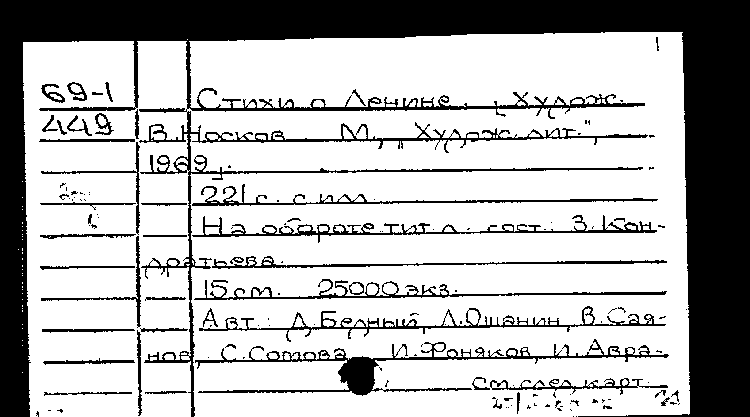 69-1
449
Стихи о Ленине. [Худож.
В. Носков. М., „Худож. лит.",
1969].
221 с. с илл.
На обороте тит. л. сост.: З. Кон-
дратьева.
15 см. 25000 экз.
Авт.: Д. Бедный, Л. Ошанин, В. Сая-
нов, С. Сомова, И. Фоняков, И. Авра-
См. след. карт.